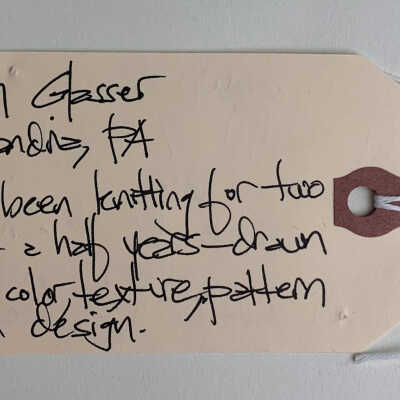 Glasser
PA
been knitting for two
a half years-drawn
color, texture, pattern
design.